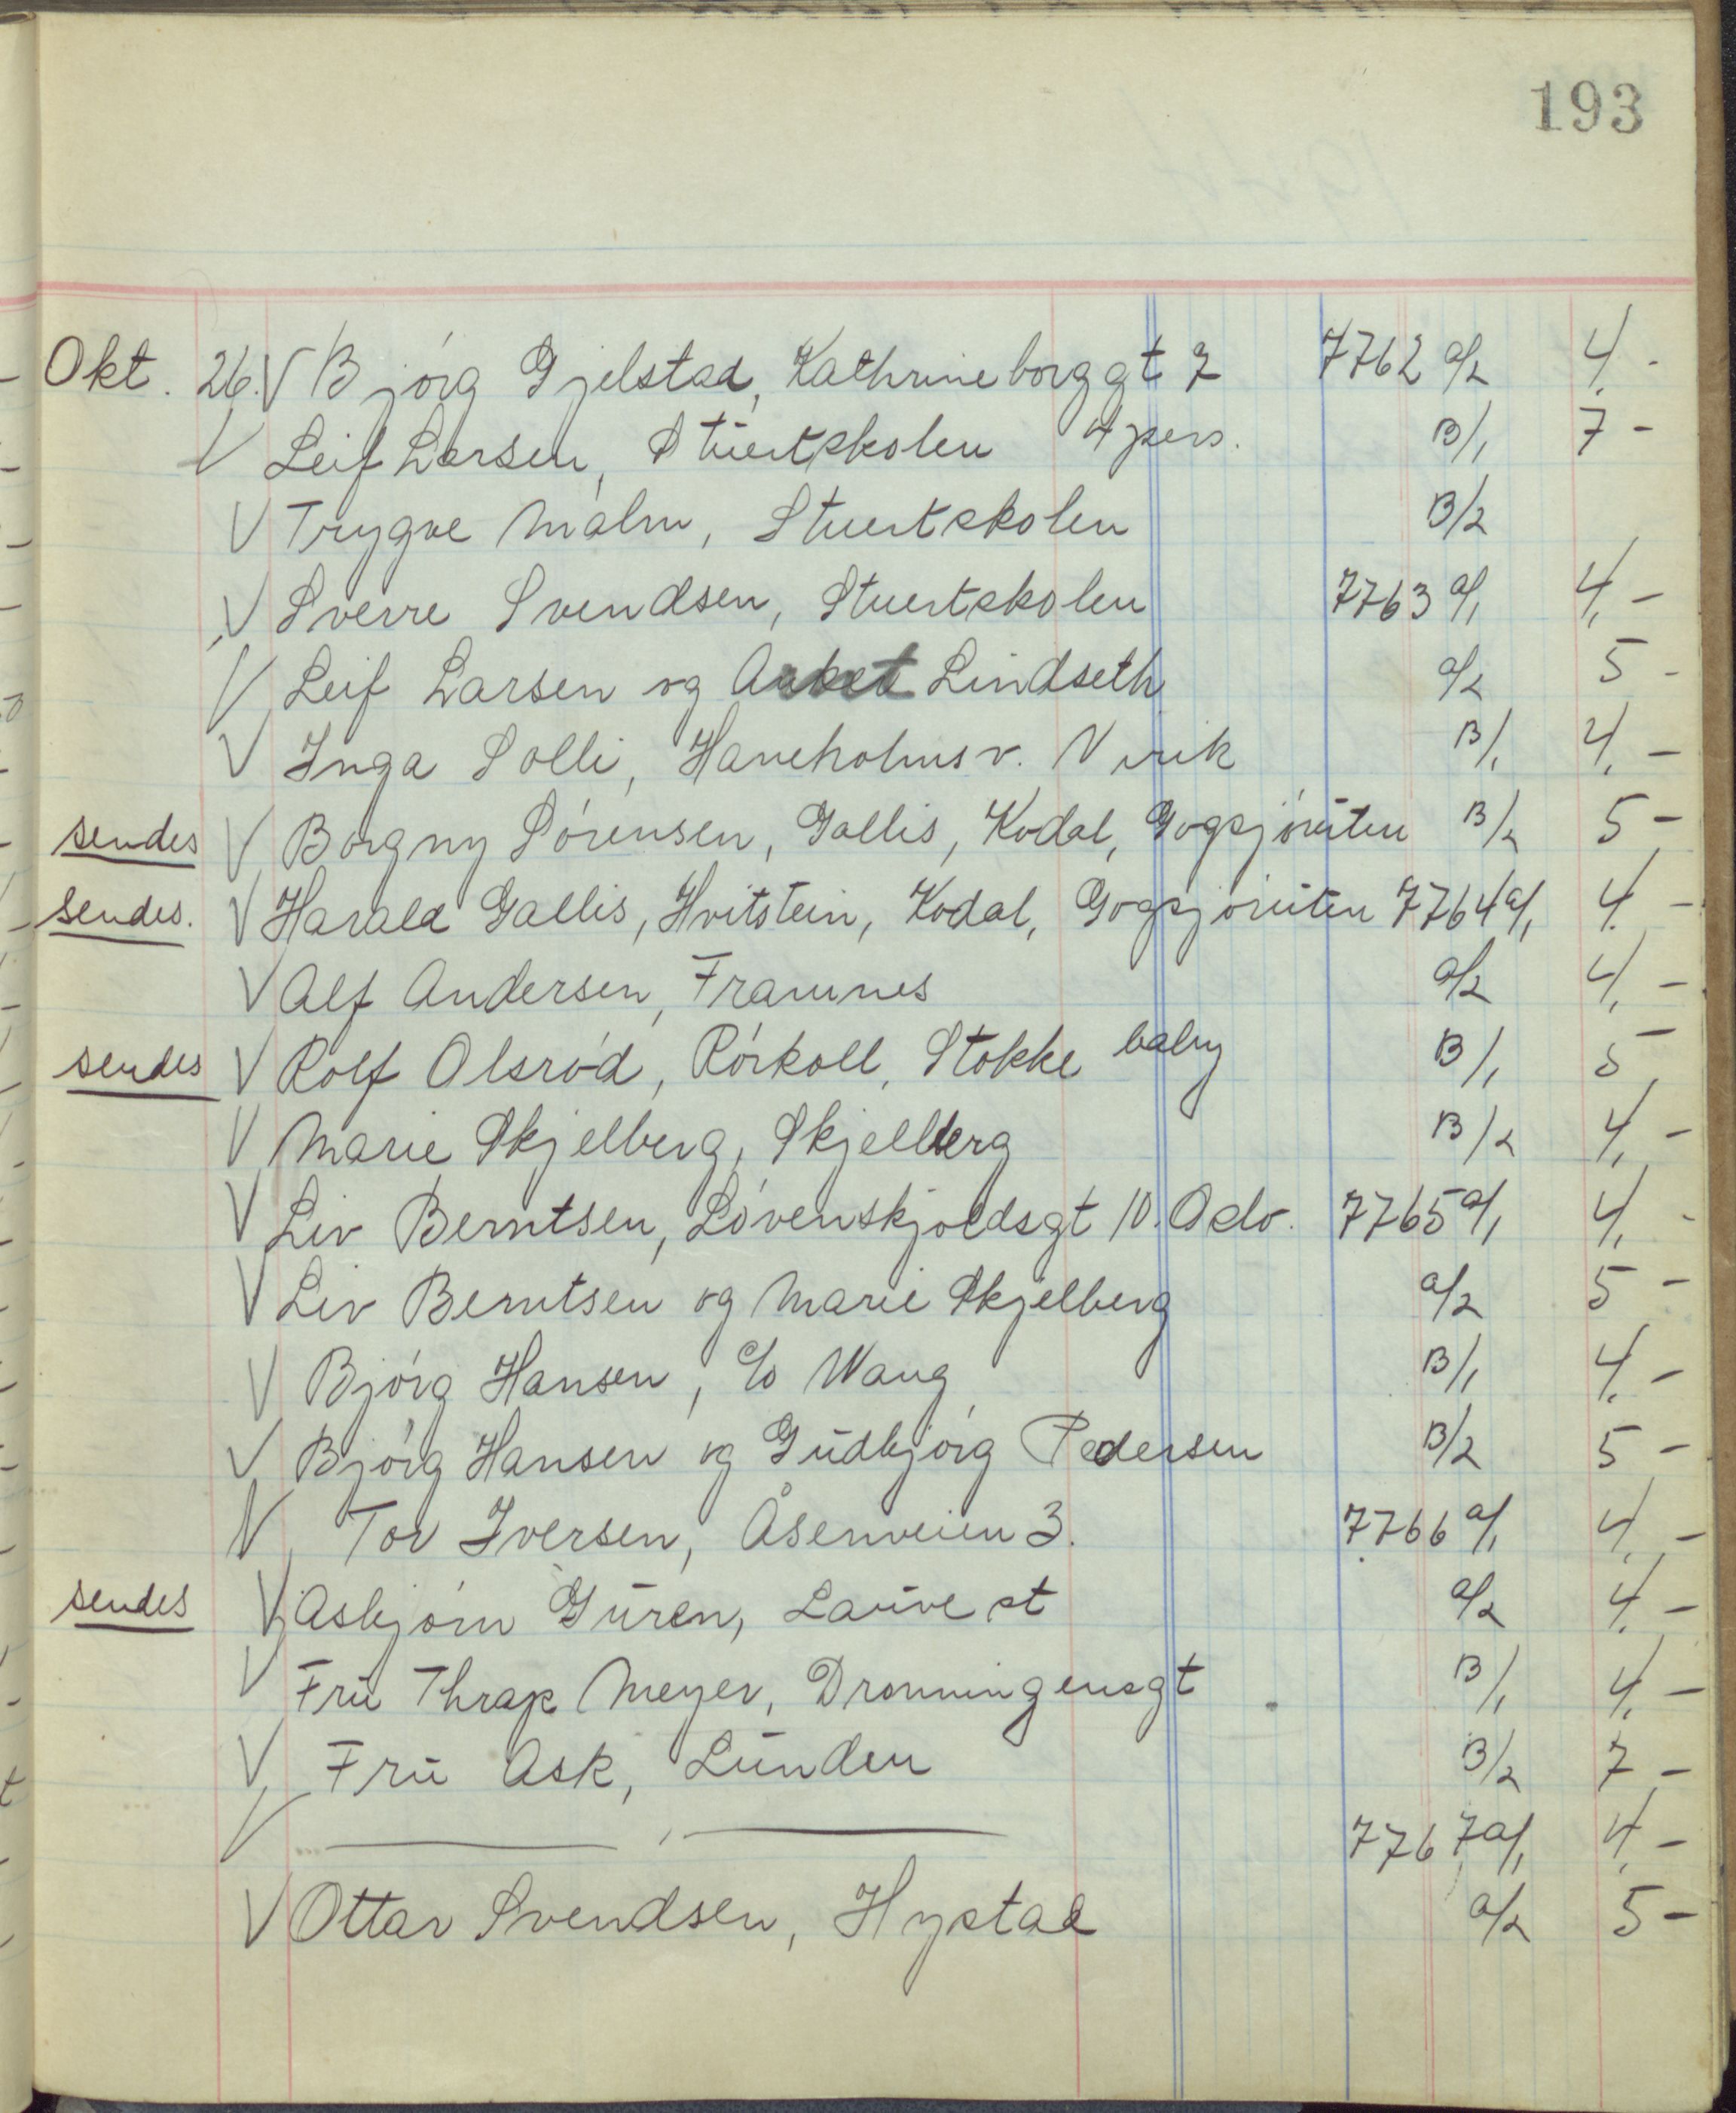 193
Okt. 26. V Bjórg Gjelstad, Kathrineborggt 7 7762 a/2 4,-
V Leif Larsen, Stuertskolen 4 pers. B/1 7-
V Trygve Malm, Stuertskolen B/2
V Sverre Svendsen, Stuertskolen 7763 a/1 4,-
V Leif Larsen og Lindseth a/2 5-
V Inga Solli, Haneholmsv. Virik B/1 4,-
sendes V Borgny Sórensen, Gallis, Kodal, Gogsjóruten B/2 5-
sendes. V Harald Gallis, Hvitstein, Kodal, Gogsjóruten 7764 a/1 4,-
V Alf Andersen, Framnes a/2 4,-
sendes V Rolf Olsród, Rórkoll, Stokke baby B/1 5-
V Marie Skjelberg, Skjelberg B/2 4,-
V Liv Berntsen, Lóvenskjoldsgt 10. Oslo. 7765 a/1 4,-
V Liv Berntsen og Marie Skjelberg a/2 5-
V Bjórg Hansen, c/o Wang B/1 4,-
V Bjórg Hansen og Gudbjórg Pedersen B/2 5-
V Tor Iversen, Åsenveien 3. 7766 a/1 4,-
sendes V Asbjórn Guren, Lauve st a/2 4,-
V Fru Thrap Meyer, Dronningensgt B/1 4,-
V Fru Ask, Lunden B/2 7-
V — , — 7767 a/1 4,-
V Ottar Svendsen, Hystad a/2 5-